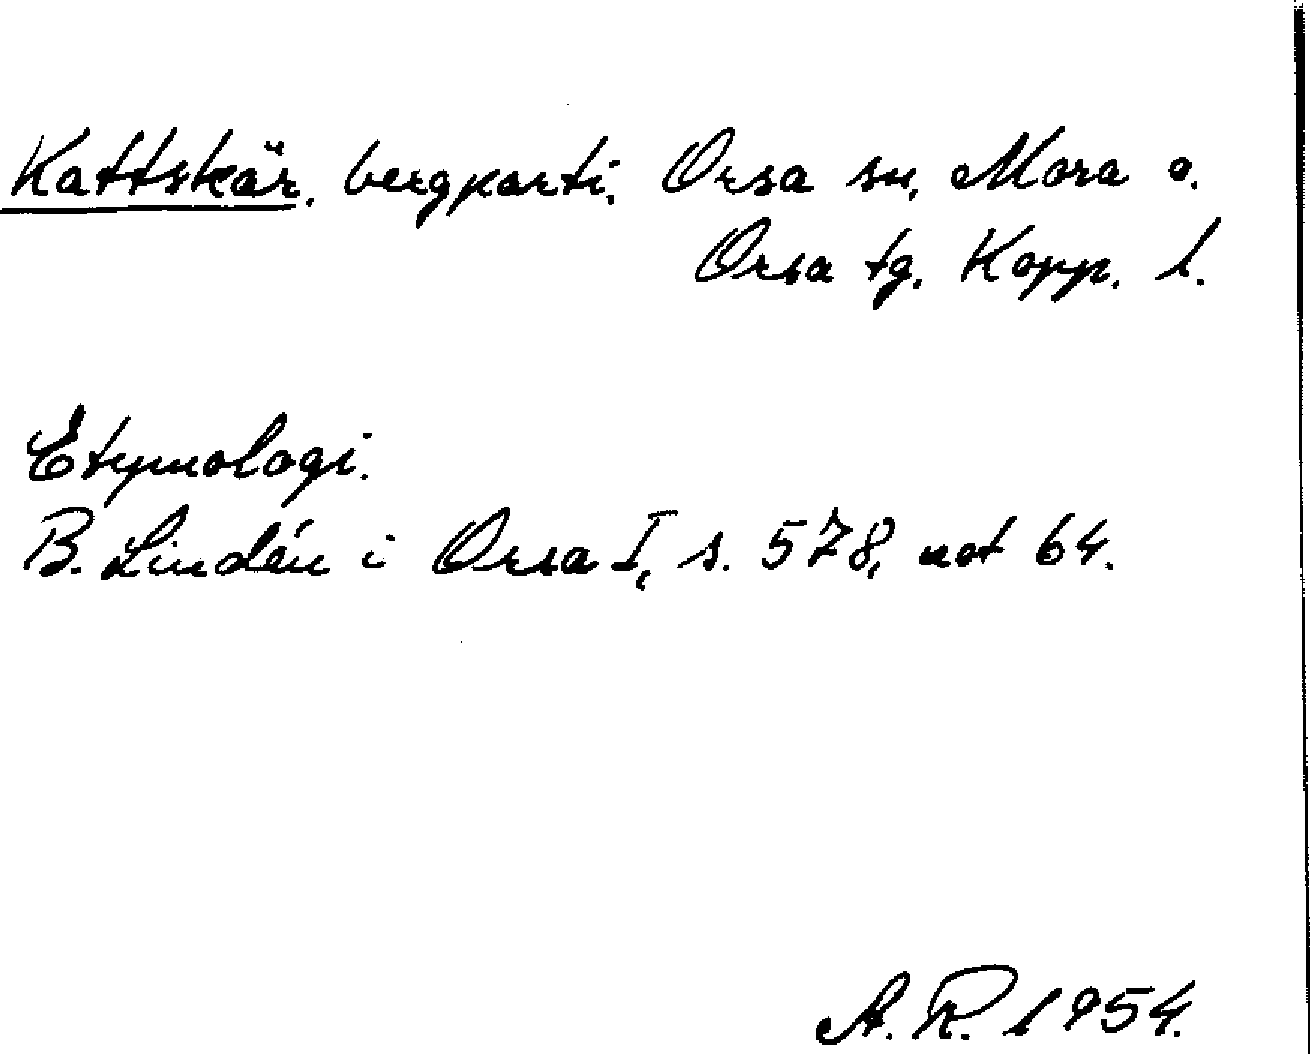 Kattskär, bergparti, Orsa sn, Mora o.
Orsa tg, Kopp. l.
Etymologi.
B. Lindén i Orsa I, s. 578, not 64.
A. R. 1954.